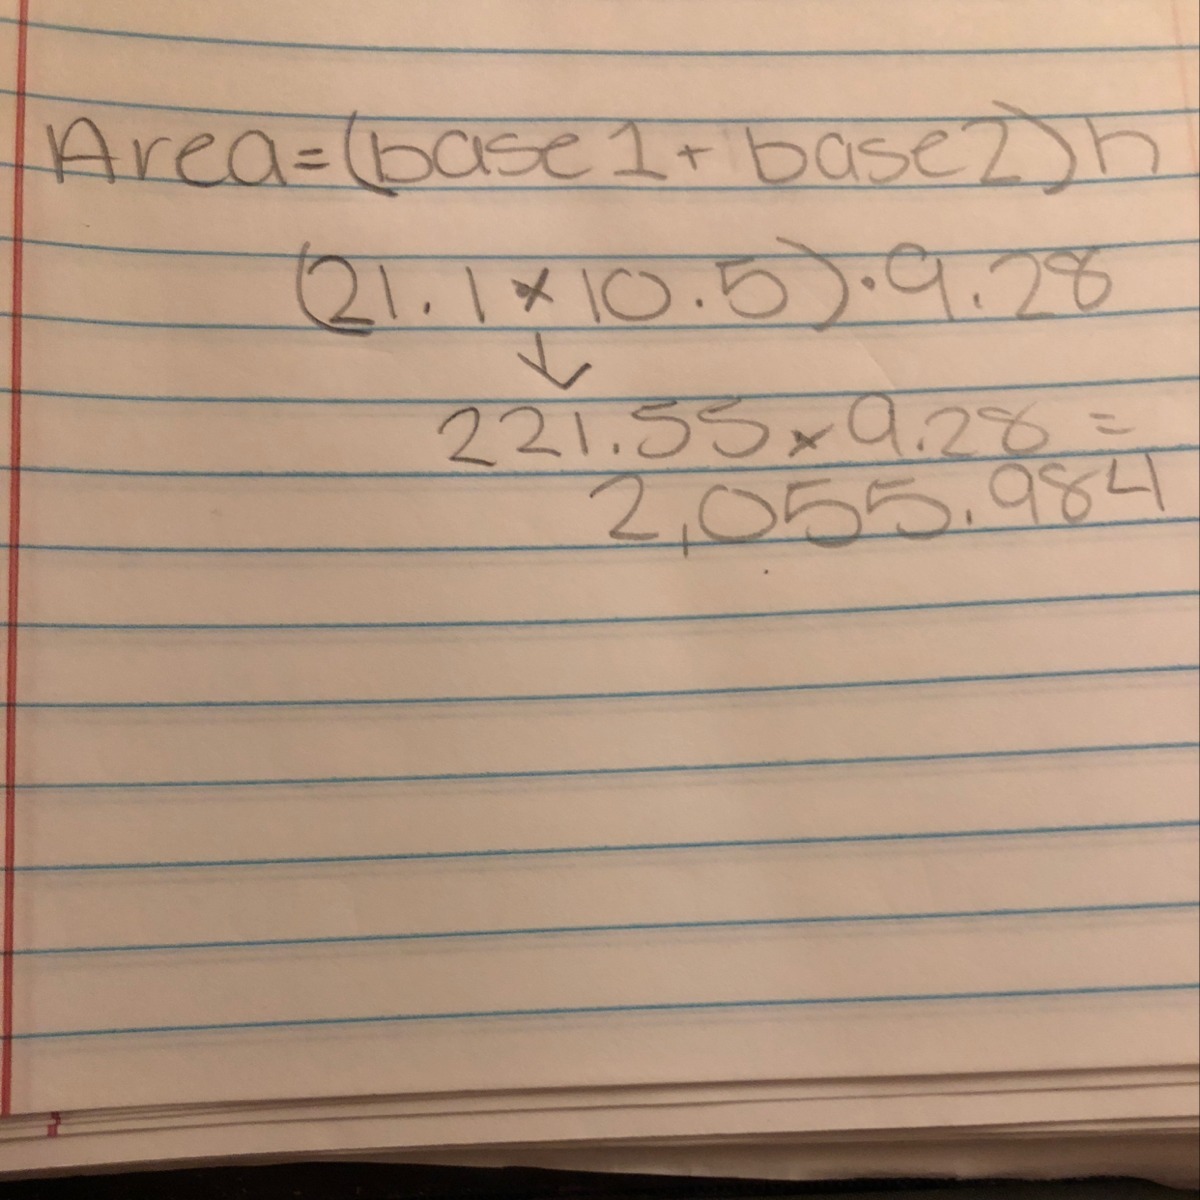 Area=(base1+base2)h
(21.1×10.5)·9.28
↓
221.55×9.28=
2,055.984